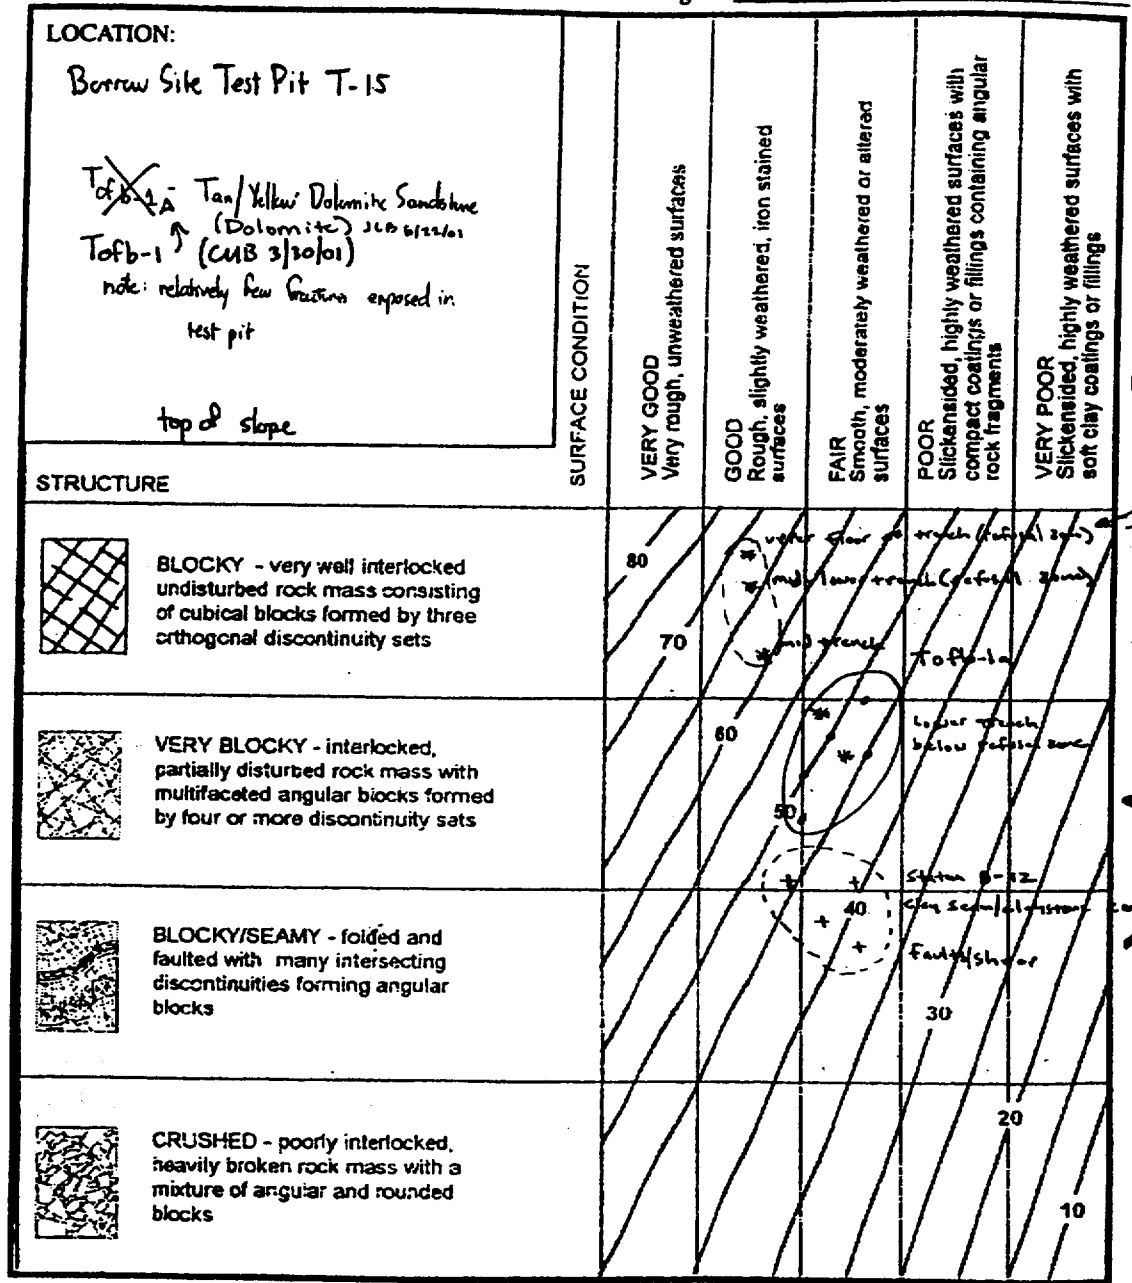 LOCATION:
Borrow Site Test Pit T-15
Tofb-1A - Tan/Yellow Dolomite Sandstone
(Dolomite) JCB 6/22/01
Tofb-1 (CMB 3/30/01)
note: relatively few fractures exposed in
test pit
top of slope
STRUCTURE
SURFACE CONDITION
VERY GOOD
Very rough, unweathered surfaces
GOOD
Rough, slightly weathered, iron stained
surfaces
FAIR
Smooth, moderately weathered or altered
surfaces
POOR
Slickensided, highly weathered surfaces with
compact coatings or fillings containing angular
rock fragments
VERY POOR
Slickensided, highly weathered surfaces with
soft clay coatings or fillings
BLOCKY - very well interlocked
undisturbed rock mass consisting
of cubical blocks formed by three
orthogonal discontinuity sets
VERY BLOCKY - interlocked,
partially disturbed rock mass with
multifaceted angular blocks formed
by four or more discontinuity sets
BLOCKY/SEAMY - folded and
faulted with many intersecting
discontinuities forming angular
blocks
CRUSHED - poorly interlocked,
heavily broken rock mass with a
mixture of angular and rounded
blocks
80
floor of trench (refusal zone)
mid lower trench (refusal zone)
70
mid trench
Tofb-1a
60
lower trench
below refusal zone
50
40
clay seam/claystone
faults/shear
30
20
10